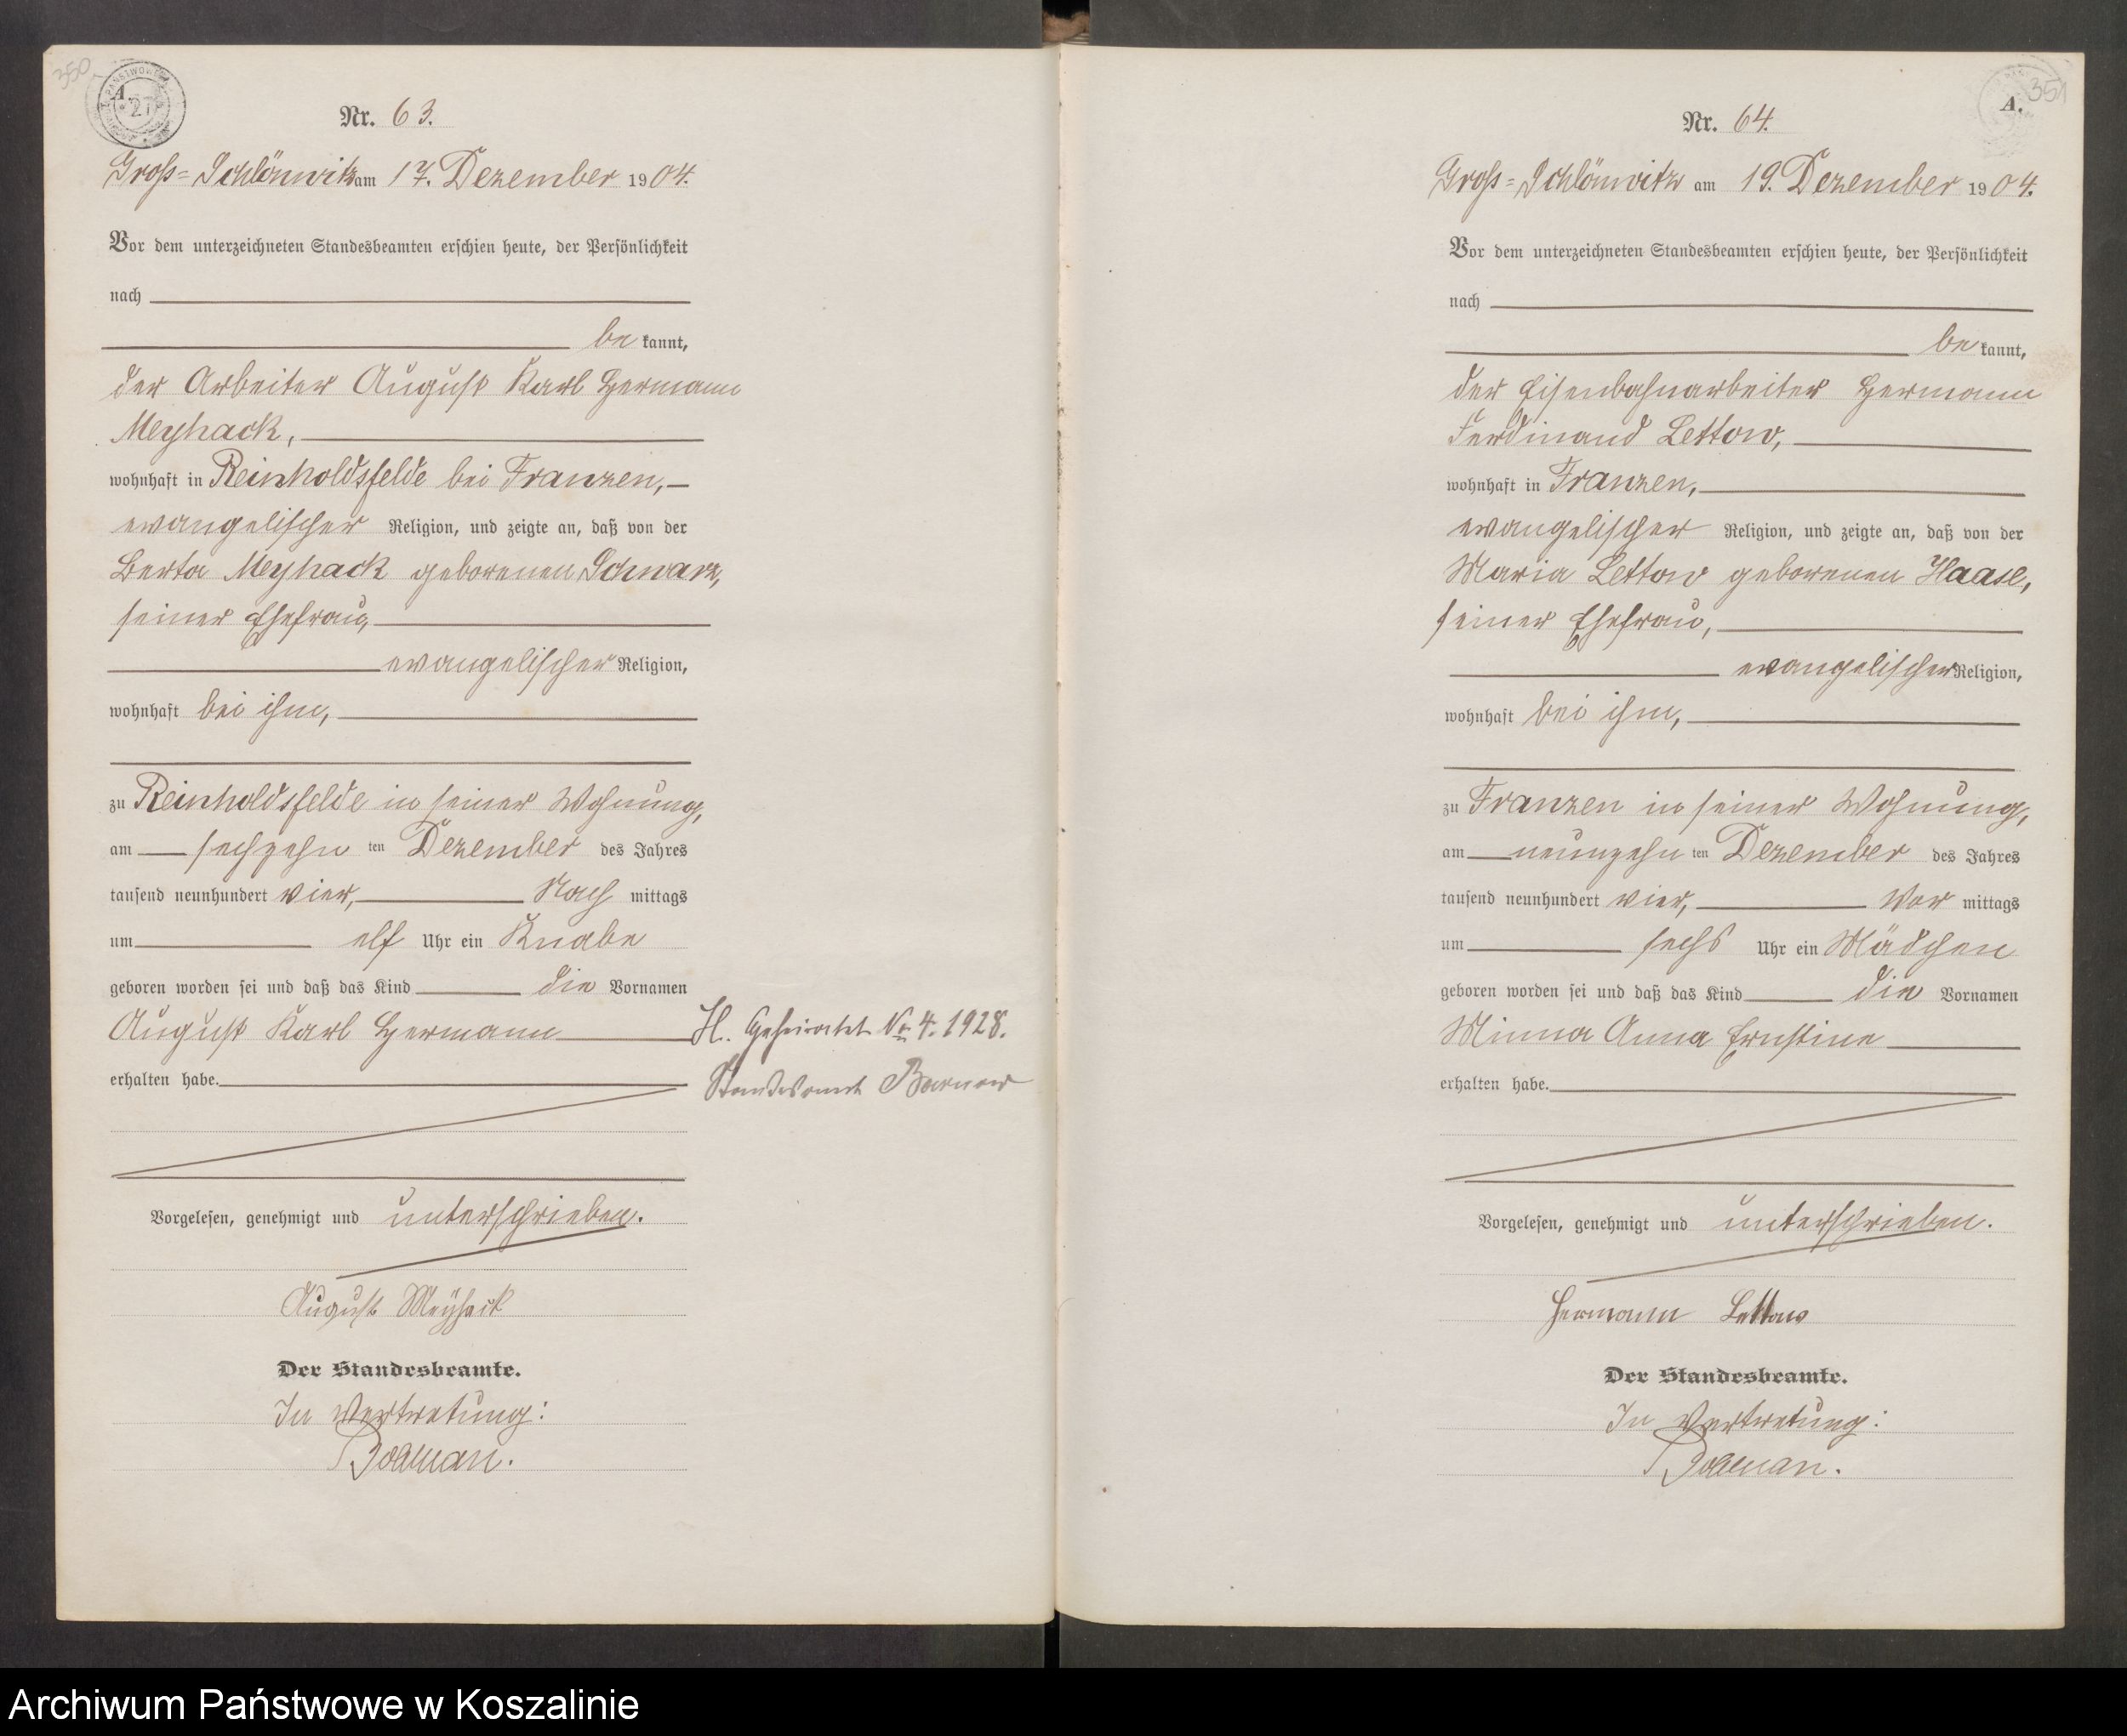 350
A.
27
Nr. 63.
Groß=Schlönwitz am 17. Dezember 1904.
Vor dem unterzeichneten Standesbeamten erschien heute, der Persönlichkeit
nach
be kannt,
der Arbeiter August Karl Hermann
Meyhack,
wohnhaft in Reinholdsfelde bei Franzen,
evangelischer Religion, und zeigte an, daß von der
Berta Meyhack geborenen Schwarz,
seiner Ehefrau,
evangelischer Religion,
wohnhaft bei ihm,
zu Reinholdsfelde in seiner Wohnung,
am sechzehn ten Dezember des Jahres
tausend neunhundert vier, Nach mittags
um elf Uhr ein Knabe
geboren worden sei und daß das Kind die Vornamen
August Karl Hermann
erhalten habe.
H. Geheiratet Nr 4. 1928.
Standesamt Barnow
Vorgelesen, genehmigt und unterschrieben.
August Meyhack
Der Standesbeamte.
In Vertretung:
351
A.
Nr. 64.
Groß=Schlönwitz am 19. Dezember 1904.
Vor dem unterzeichneten Standesbeamten erschien heute, der Persönlichkeit
nach
be kannt,
der Eisenbahnarbeiter Hermann
Ferdinand Lettow,
wohnhaft in Franzen,
evangelischer Religion, und zeigte an, daß von der
Maria Lettow geborenen Haase,
seiner Ehefrau,
evangelischer Religion,
wohnhaft bei ihm,
zu Franzen in seiner Wohnung,
am neunzehn ten Dezember des Jahres
tausend neunhundert vier, Vor mittags
um sechs Uhr ein Mädchen
geboren worden sei und daß das Kind die Vornamen
Minna Anna Ernstine
erhalten habe.
Vorgelesen, genehmigt und unterschrieben.
Hermann Lettow
Der Standesbeamte.
In Vertretung:
Archiwum Państwowe w Koszalinie